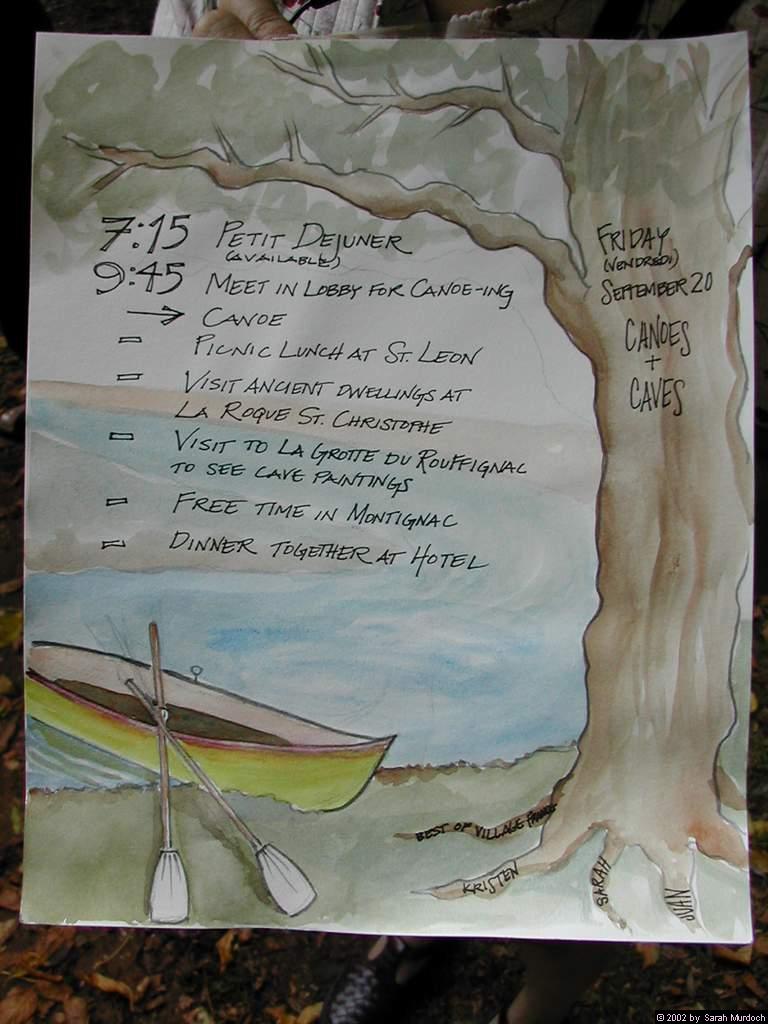 7:15 PETIT DEJUNER
(AVAILABLE)
9:45 MEET IN LOBBY FOR CANOE-ING
→ CANOE
PICNIC LUNCH AT ST. LEON
VISIT ANCIENT DWELLINGS AT
LA ROQUE ST. CHRISTOPHE
VISIT TO LA GROTTE DU ROUFFIGNAC
TO SEE CAVE PAINTINGS
FREE TIME IN MONTIGNAC
DINNER TOGETHER AT HOTEL
FRIDAY
(VENDREDI)
SEPTEMBER 20
CANOES
+
CAVES
BEST OF VILLAGE
KRISTEN
SARAH
JUAN
© 2002 by Sarah Murdoch